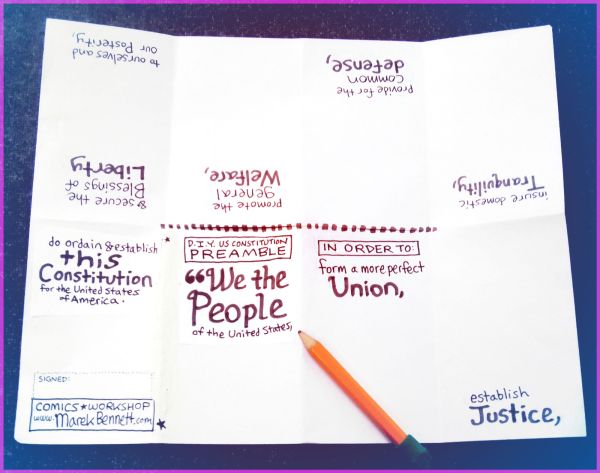 D.I.Y. US CONSTITUTION
PREAMBLE
“We the
People
of the United States,
IN ORDER TO:
form a more perfect
Union,
establish
Justice,
insure domestic
Tranquility,
Provide for the
Common
defense,
promote the
general
Welfare,
& secure the
Blessings of
Liberty
to ourselves and
our Posterity,
do ordain & establish
this
Constitution
for the United States
of America.
SIGNED:
COMICS★WORKSHOP
www.MarekBennett.com